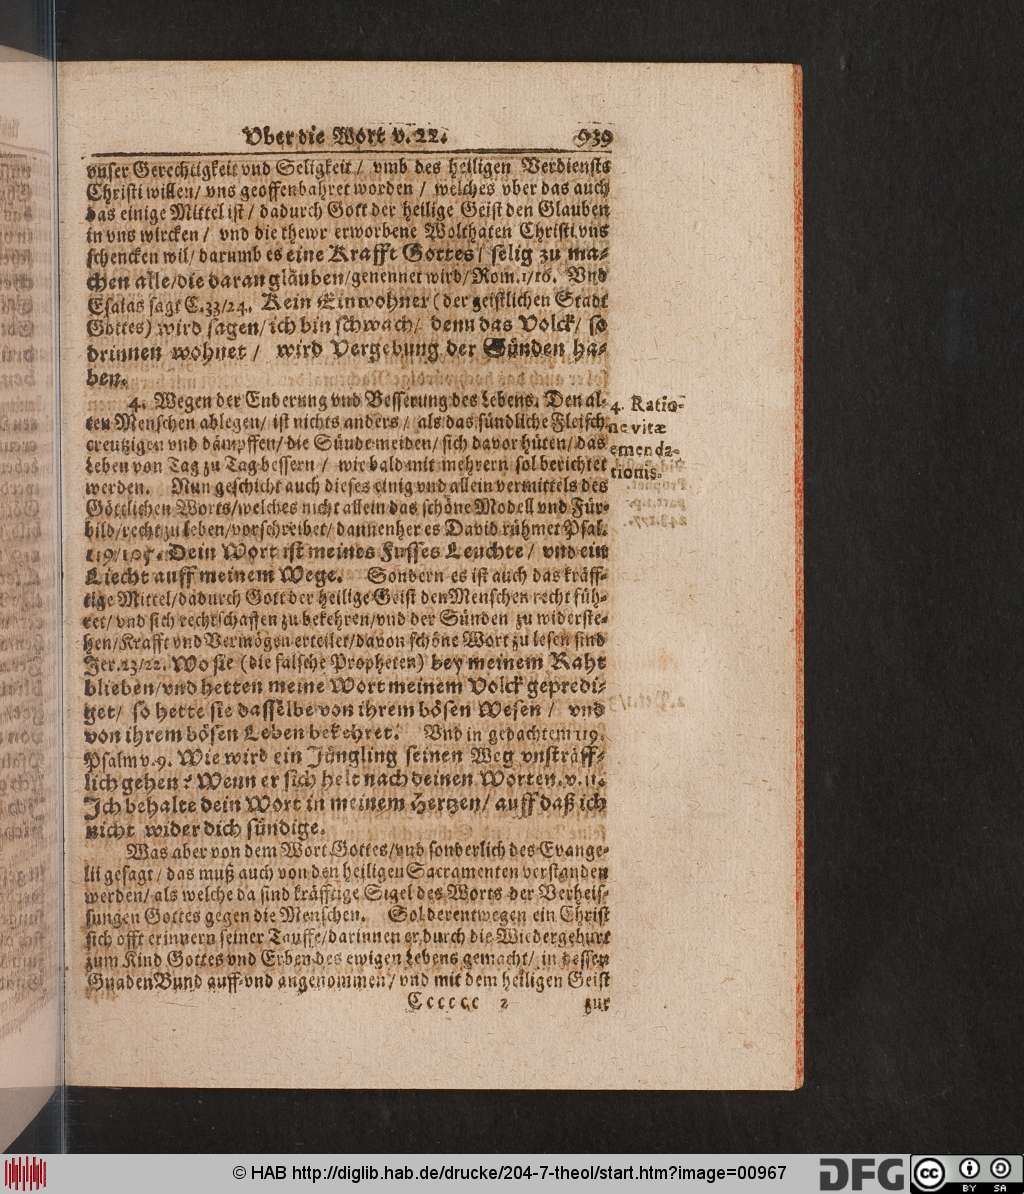 Vber die Wort v. 22. 939
vnser Gerechtigkeit vnd Seligkeit / vmb des heiligen Verdiensts
Christi willen / vns geoffenbahret worden / welches vber das auch
das einige Mittel ist / dadurch Gott der heilige Geist den Glauben
in vns wircken / vnd die thewr erworbene Wolthaten Christi vns
schencken wil / darumb es eine Krafft Gottes / selig zu ma-
chen alle / die daran gläuben / genennet wird / Rom. 1/16. Vnd
Esaias sagt C. 33/24. Kein Einwohner (der geistlichen Stadt
Gottes) wird sagen / ich bin schwach / denn das Volck / so
drinnen wohnet / wird Vergebung der Sünden ha-
ben.
4. Wegen der Enderung vnd Besserung des Lebens. Den al-
ten Menschen ablegen / ist nichts anders / als das sündliche Fleisch
creutzigen vnd dämpffen / die Sünde meiden / sich davor hüten / das
Leben von Tag zu Tag bessern / wie bald mit mehrern sol berichtet
werden. Nun geschicht auch dieses einig vnd allein vermittels des
Göttlichen Worts / welches nicht allein das schöne Modell vnd Für-
bild / recht zu leben / vorschreibet / dannenher es David rühmet Psal.
119/105. Dein Wort ist meines Fusses Leuchte / vnd ein
Liecht auff meinem Wege. Sondern es ist auch das kräff-
tige Mittel / dadurch Gott der heilige Geist den Menschen recht füh-
ret / vnd sich rechtschaffen zu bekehren / vnd der Sünden zu widerste-
hen / Krafft vnd Vermögen erteilet / davon schöne Wort zu lesen sind
Jer. 23/22. Wo sie (die falsche Propheten) bey meinem Raht
blieben / vnd hetten meine Wort meinem Volck gepredi-
get / so hette sie dasselbe von ihrem bösen Wesen / vnd
von ihrem bösen Leben bekehret. Vnd in gedachtem 119.
Psalm v. 9. Wie wird ein Jüngling seinen Weg vnsträff-
lich gehen? Wenn er sich helt nach deinen Worten. v. 11.
Jch behalte dein Wort in meinem Hertzen / auff daß ich
nicht wider dich sündige.
Was aber von dem Wort Gottes / vnd sonderlich des Evange-
lii gesagt / das muß auch von den heiligen Sacramenten verstanden
werden / als welche da sind kräfftige Sigel des Worts der Verheis-
sungen Gottes gegen die Menschen. Sol derentwegen ein Christ
sich offt erinnern seiner Tauffe / darinnen er durch die Wiedergeburt
zum Kind Gottes vnd Erben des ewigen Lebens gemacht / in dessen
Gnaden Bund auff- vnd angenommen / vnd mit dem heiligen Geist
Cccccc 2 zur
4. Ratio-
ne vitæ
emenda-
tionis.
© HAB http://diglib.hab.de/drucke/204-7-theol/start.htm?image=00967
DFG
cc BY SA